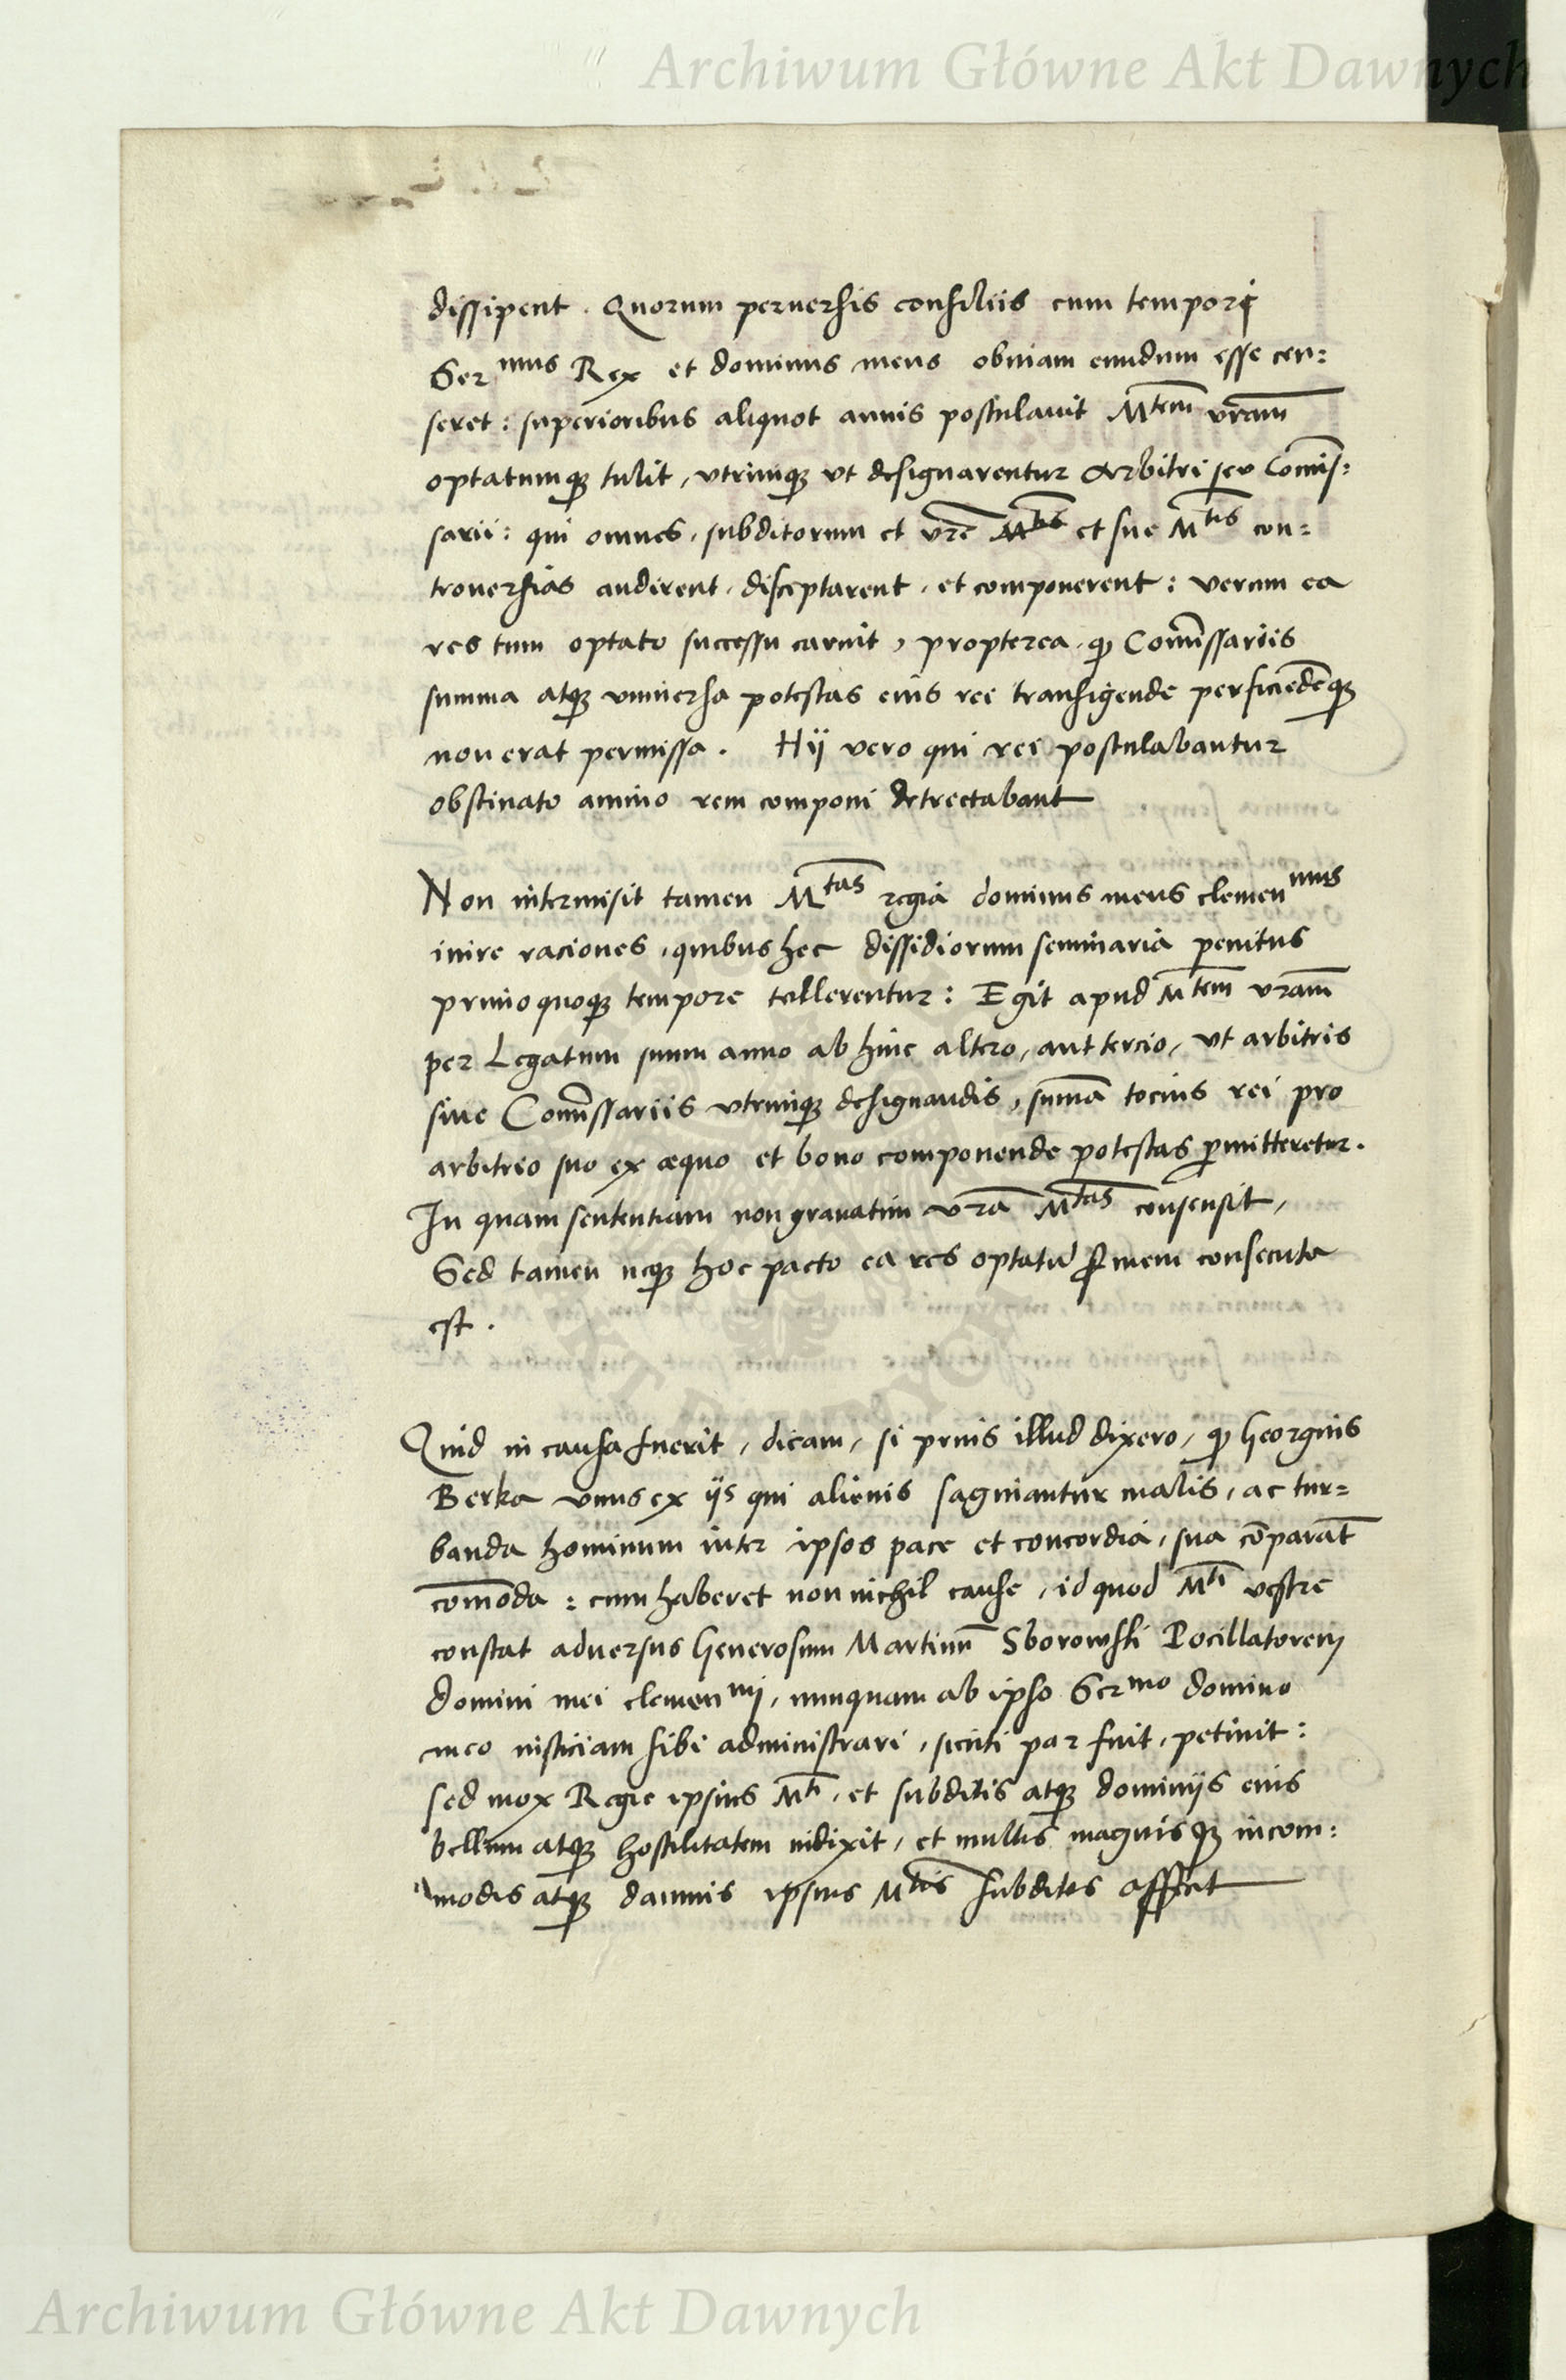 Archiwum Główne Akt Dawnych
dissipent. Quorum peruersis consiliis cum tempori
Ser mus Rex et dominus meus obuiam eundum esse cen:
seret: superioribus aliquot annis postulauit Mtem vram
optatumq; tulit, vtrinq; vt designarentur Arbitri seu Comis:
sarii: qui omnes, subditorum et vre Mtis et sue Mtis con:
trouersias audirent, disceptarent, et componerent: verum ea
res tum optato successu caruit, propterea, q Comissariis
summa atq; vniuersa potestas eius rei transigende perficiendeq;
non erat permissa. Hij vero qui rei postulabantur
obstinato animo rem componi detrectabant
Non intermisit tamen Mtas regia dominus meus clemen mus
inire raciones, quibus hec dissidiorum seminaria penitus
primo quoq; tempore tollerentur: Egit apud Mtem vram
per Legatum suum anno ab hinc altero, aut tercio, vt arbitris
siue Comissariis vtrinq; designandis, suma tocius rei pro
arbitrio suo ex æquo et bono componende potestas pmitteretur.
In quam sententiam non grauatim vra Mtas consensit,
Sed tamen neq; hoc pacto ea res optatu finem consecuta
est.
Quid in causa fuerit, dicam, si prius illud dixero, q Georgius
Berka vnus ex ijs qui alienis saginantur malis, ac tur=
banda hominum inter ipsos pace et concordia, sua coparat
comoda: cum haberet non nichil cause, id quod Mti vestre
constat aduersus Generosum Martinu Sborowski Pocillatorem
domini mei clemen mi, nunquam ab ipso Ser mo domino
meo iusticiam sibi administrari, sicuti par fuit, petiuit:
sed mox Regie ipsius Mti, et subditis atq; dominijs eius
bellum atq; hostilitatem indixit, et multis magnisq; incom:
modis atq; damnis ipsius Mtis subditos affecit
Archiwum Główne Akt Dawnych